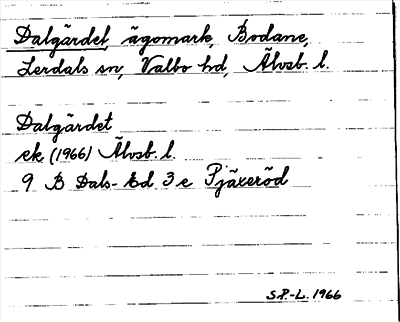 Dalgärdet, ägomark, Bodane,
Lerdals sn, Valbo hd, Älvsb. l.
Dalgärdet
ek (1966) Älvsb. l.
9 B Dals-Ed 3 e Pjäxeröd
S.P.-L. 1966